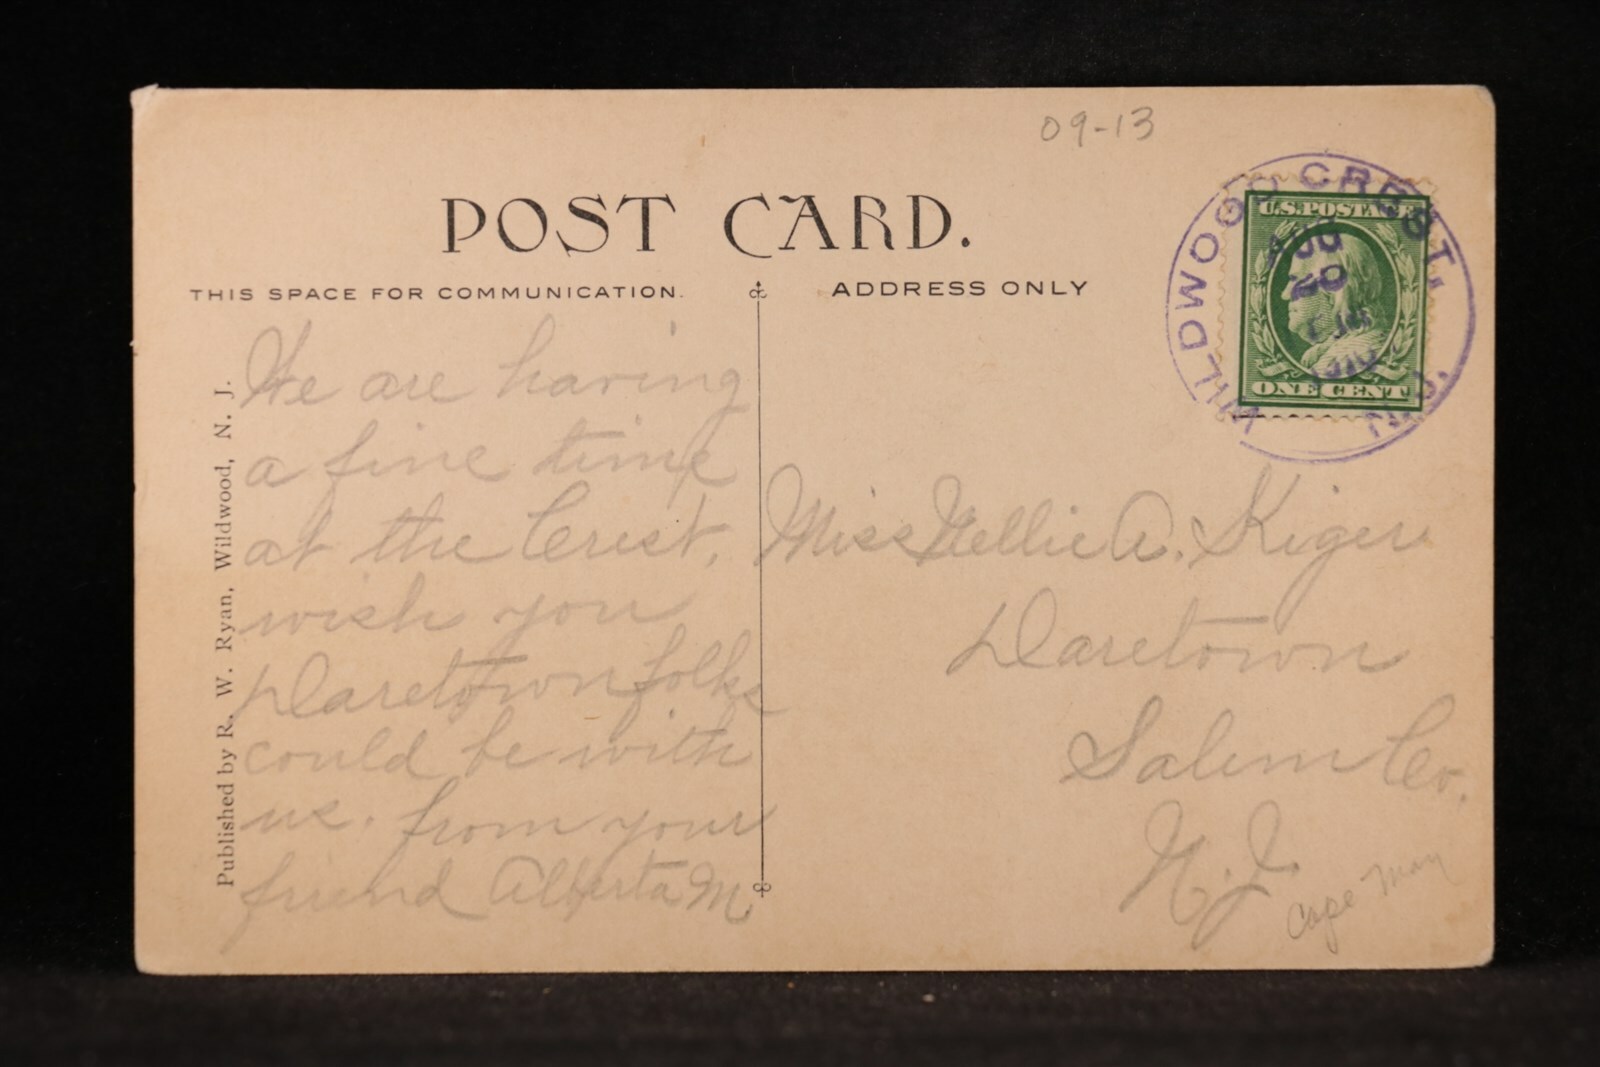 09-13
POST CARD.
THIS SPACE FOR COMMUNICATION.
ADDRESS ONLY
WILDWOOD CREST,
N.J.
AUG
20
1910
U.S. POSTAGE
ONE CENT
We are having
a fine time
at the Crest,
wish you
Daretown folks
could be with
us. from your
friend Alberta M
Miss Nellie A. Kiger
Daretown
Salem Co.
N.J.
Cape May
Published by R. W. Ryan, Wildwood, N. J.